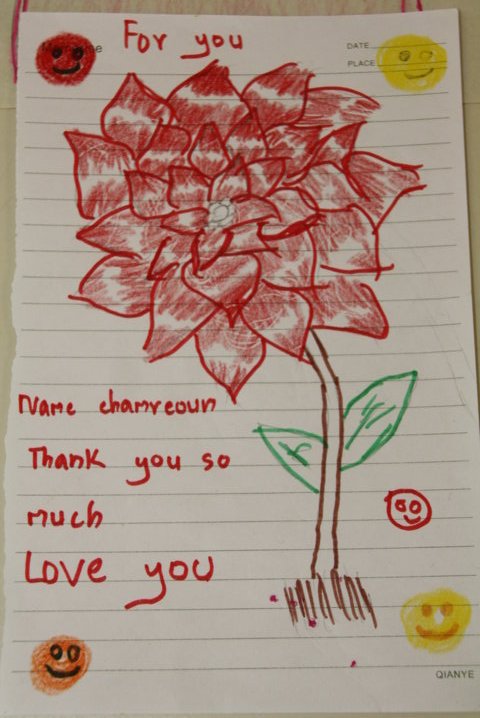 For you
DATE
PLACE
Name chamreoun
Thank you so
much
Love you
QIANYE